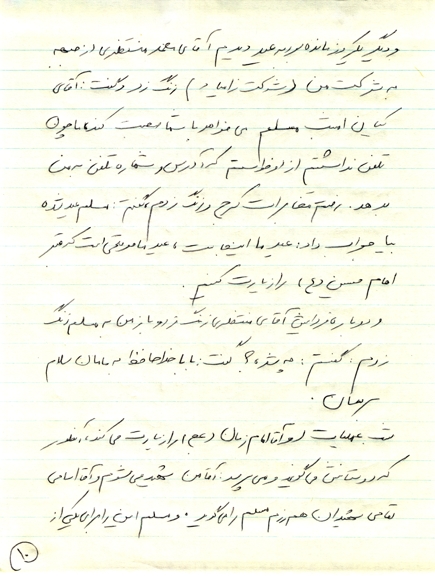 و دیگر یکروز مانده بود به عید دیدیم آقای محمد منتظری از جبهه
به شرکت من (شرکت زامیاد) زنگ زد و گفت: آقای
این است مسلم می‌خواهد با شما صحبت کند، ما چون
تلفن نداشتیم از او خواستم که آدرس و شماره تلفن به من
بدهد. رفتم مخابرات کرج و زنگ زدم، گفتم: مسلم عید شده
بیا جواب داد: عید ما اینجاست، عید ما موقعی است که قبر
امام حسین (ع) را زیارت کنیم.
و دوباره فردایش آقای منتظری زنگ زد و باز من به مسلم زنگ
زدم. گفتم: چه شده؟ گفت: بابا خداحافظ به مامان سلام
برسان.
شب عملیات او آقا امام زمان (عج) را زیارت می‌کند، آنطور
که دوستانش می‌گویند و می‌پرسد: آقا من شهید می‌شوم و آقا اسامی
تمامی شهیدان همرزم مسلم را می‌گوید. و مسلم این را برای یکی از
۱۰